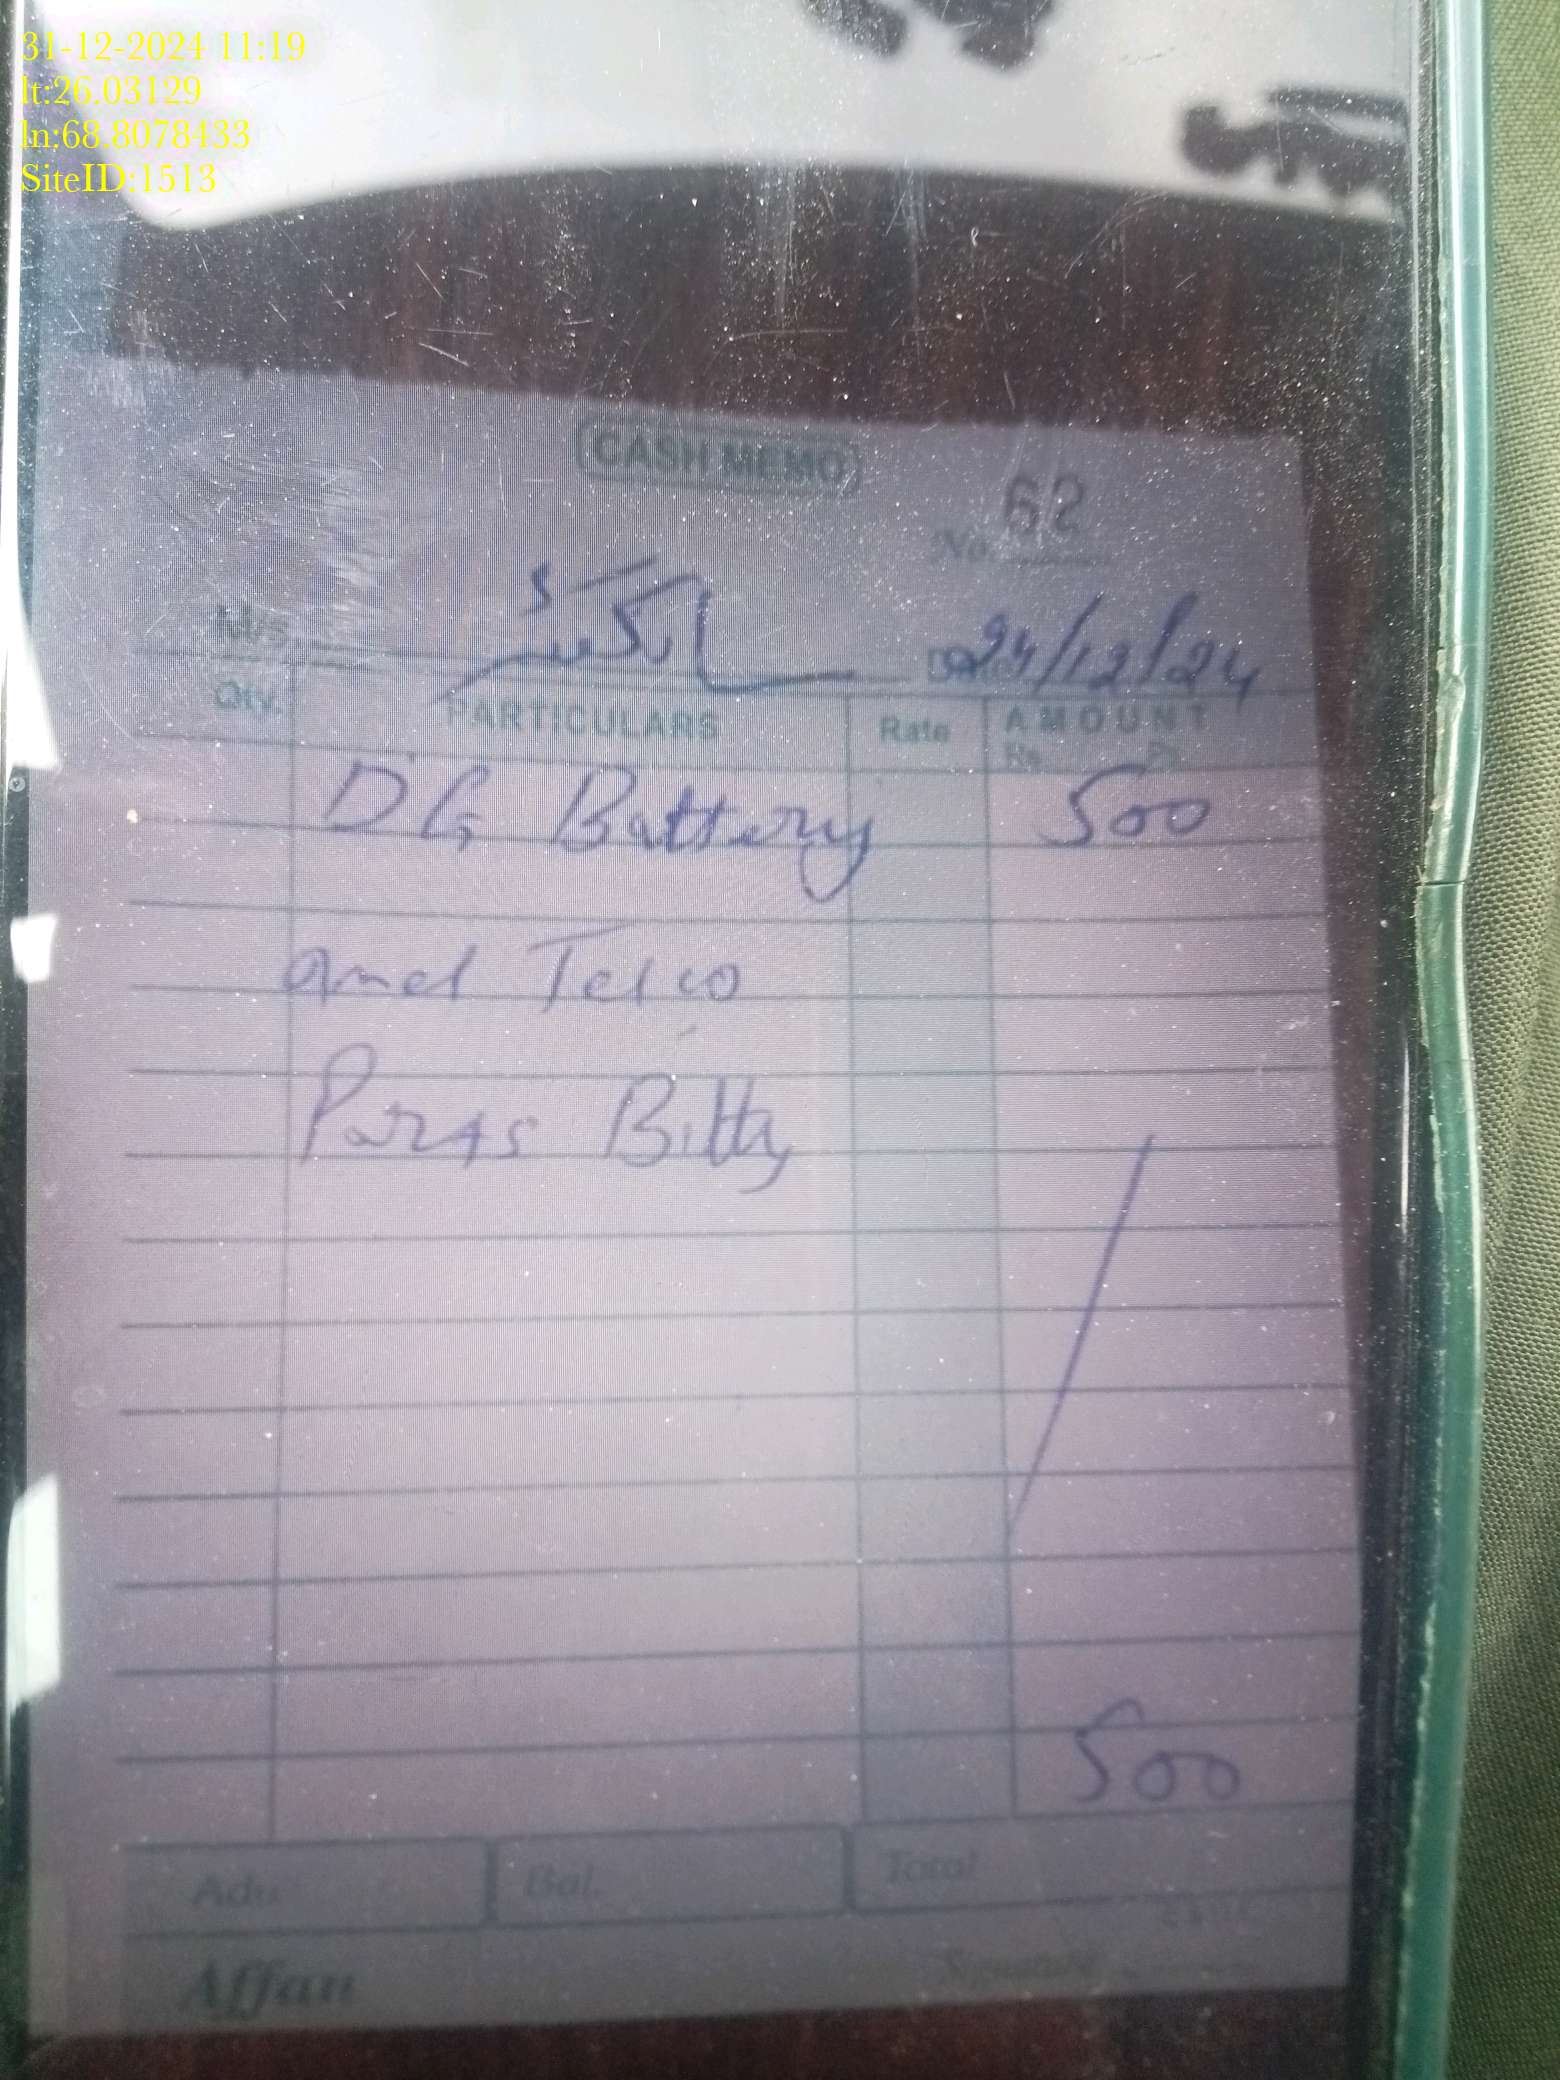 31-12-2024 11:19
lt:26.03129
ln:68.8078433
SiteID:1513
CASH MEMO
No. 62
M/s
24/12/24
Qty. PARTICULARS Rate AMOUNT
Rs. Ps.
DG Battery 500
and Telco
Battery
500
Adv. Bal. Total
Affan Signature